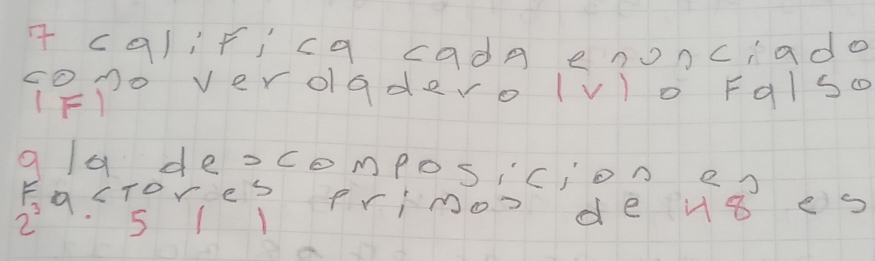 7 califica cada enunciado
como verdadero (v) o Falso
(F)
a la descomposicion en
Factores primos de 48 es
2³ . 5 ( )